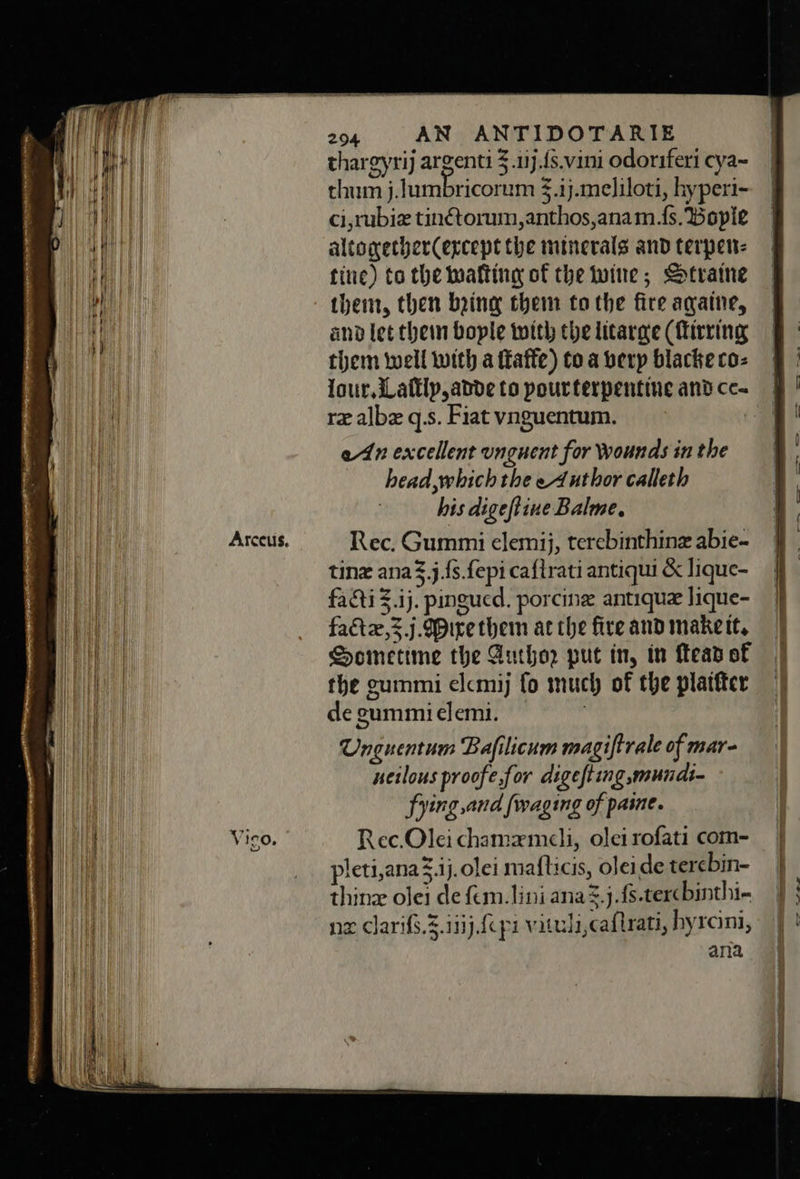 294 AN ANTIDOTARIE
thargyrij argenti ℥.iij.ſs.vini odoriferi cya-
thum j.lumbricorum ℥.ij.meliloti, hyperi-
ci,rubiæ tinctorum,anthos,ana m.ſs. Boyle
altogether(except the minerals and terpen-
tine) to the waſting of the wine; Straine
them, then bꝛing them to the fire againe,
and let them boyle with the litarge (ſtirring
them well with a ſtaffe) to a very blacke co-
lour. Laſtly,adde to pour terpentine and ce-
ræ albæ q.s. Fiat vnguentum.
An excellent vnguent for wounds in the
head,which the Author calleth
his digeſtiue Balme.
Arceus.
Rec. Gummi elemij, terebinthinæ abie-
tinæ ana ℥.j.ſs.ſepi caſtrati antiqui & lique-
facti ℥.ij. pingued. porcinæ antiquæ lique-
factæ,℥.j. Mixe them at the fire and make it.
Sometime the Authoꝛ put in, in ſtead of
the gummi elemij ſo much of the plaiſter
de gummi elemi.
Unguentum Baſilicum magiſtrale of mar-
ueilous proofe,for digeſting,mundi-
fying,and ſwaging of paine.
Vigo.
Rec.Olei chamæmeli, olei roſati com-
pleti,ana ℥.ij. olei maſticis, olei de terebin-
thinæ olei de ſem.lini ana ℥.j.ſs.terebinthi-
næ clariſs.℥.iiij.ſepi vituli,caſtrati, hyrcini,
ana